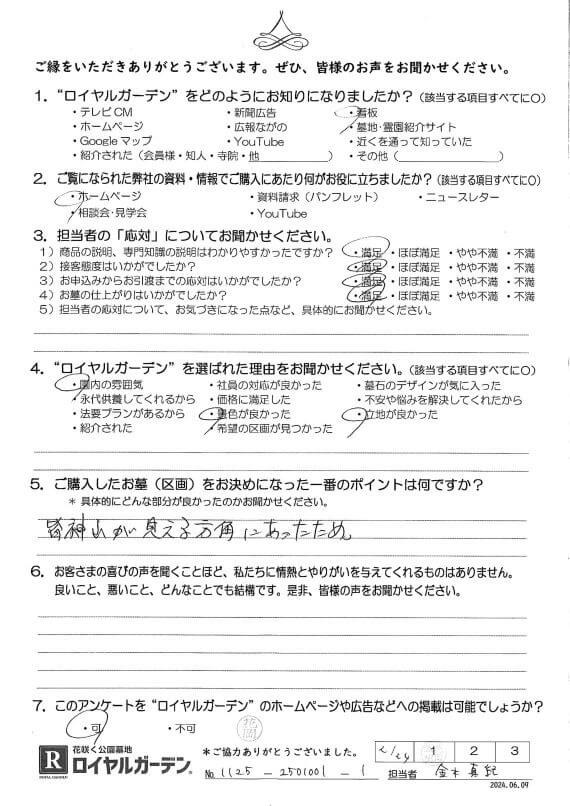 ご縁をいただきありがとうございます。ぜひ、皆様のお声をお聞かせください。
1. “ロイヤルガーデン”をどのようにお知りになりましたか？(該当する項目すべてに○)
・テレビCM ・新聞広告 ・看板
・ホームページ ・広報ながの ・墓地・霊園紹介サイト
・Googleマップ ・YouTube ・近くを通って知っていた
・紹介された（会員様・知人・寺院・他　　　　） ・その他（　　　　）
2. ご覧になられた弊社の資料・情報でご購入にあたり何がお役に立ちましたか？(該当する項目すべてに○)
・ホームページ ・資料請求（パンフレット） ・ニュースレター
・相談会・見学会 ・YouTube
3. 担当者の「応対」についてお聞かせください。
1）商品の説明、専門知識の説明はわかりやすかったですか？ ・満足 ・ほぼ満足 ・やや不満 ・不満
2）接客態度はいかがでしたか？ ・満足 ・ほぼ満足 ・やや不満 ・不満
3）お申込みからお引渡までの応対はいかがでしたか？ ・満足 ・ほぼ満足 ・やや不満 ・不満
4）お墓の仕上がりはいかがでしたか？ ・満足 ・ほぼ満足 ・やや不満 ・不満
5）担当者の応対について、お気づきになった点など、具体的にお聞かせください。
4. “ロイヤルガーデン”を選ばれた理由をお聞かせください。(該当する項目すべてに○)
・園内の雰囲気 ・社員の対応が良かった ・墓石のデザインが気に入った
・永代供養してくれるから ・価格に満足した ・不安や悩みを解決してくれたから
・法要プランがあるから ・景色が良かった ・立地が良かった
・紹介された ・希望の区画が見つかった
5. ご購入したお墓（区画）をお決めになった一番のポイントは何ですか？
＊ 具体的にどんな部分が良かったのかお聞かせください。
皆神山が見える方角にあったため
6. お客さまの喜びの声を聞くことほど、私たちに情熱とやりがいを与えてくれるものはありません。
良いこと、悪いこと、どんなことでも結構です。是非、皆様の声をお聞かせください。
7. このアンケートを“ロイヤルガーデン”のホームページや広告などへの掲載は可能でしょうか？
・可 ・不可
R ROYAL GARDEN 花咲く公園墓地 ロイヤルガーデン®
＊ご協力ありがとうございました。 2/24 1 2 3
No. 1125 － 2501001 － 1 担当者 金木 真紀
2024.06.09